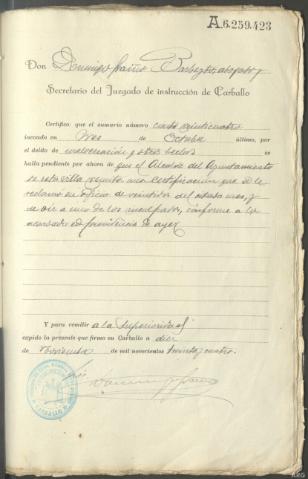 A.6.259.423
Don Domingo
Secretario del Juzgado de instrucción de Carballo
Certifico que el sumario número ciento veinticuatro
incoado en tres de Octubre último, por
el delito de malversación y otros hechos se
halla pendiente por ahora de que el Alcalde del Ayuntamiento
de esta villa remita una certificación que se le
reclamó en oficio de veintidos del citado mes, y
de oir a uno de los inculpados, conforme a lo
acordado en providencia de ayer
Y para remitir a la Superioridad
expido la presente que firmo en Carballo a diez
de Noviembre de mil novecientos treinta y cuatro.